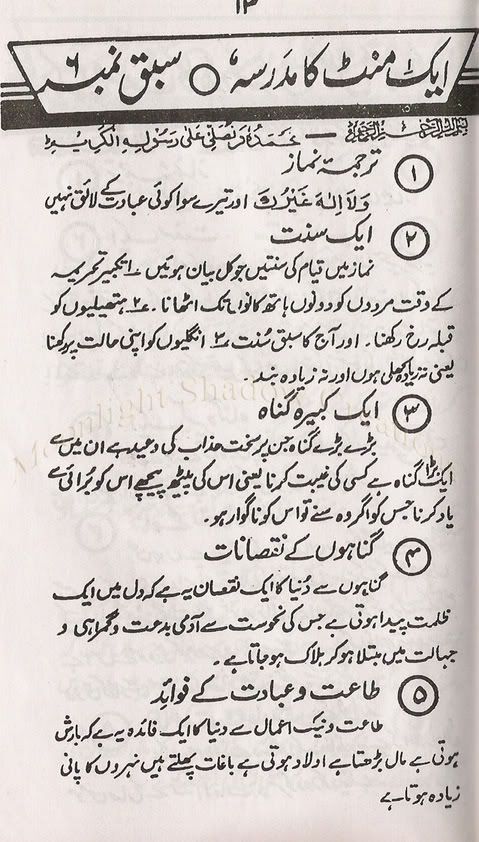 ۱۳
ایک منٹ کا مدرسہ، ○ سبق نمبر ۶
بسم اللہ الرحمن الرحیم — نحمدہ ونصلی علی رسولہ الکریم
۱ ترجمۂ نماز
وَلَا اِلٰهَ غَيْرُكَ اور تیرے سوا کوئی عبادت کے لائق نہیں
۲ ایک سنت
نماز میں قیام کی سنتیں جو کل بیان ہوئیں ۱؎ تکبیر تحریمہ
کے وقت مردوں کو دونوں ہاتھ کانوں تک اٹھانا۔ ۲؎ ہتھیلیوں کو
قبلہ رخ رکھنا۔ اور آج کا سبق سُنت ۳؎ انگلیوں کو اپنی حالت پر رکھنا
یعنی نہ زیادہ کھلی ہوں اور نہ زیادہ بند
۳ ایک کبیرہ گناہ
بڑے بڑے گناہ جن پر سخت عذاب کی وعید ہے ان میں سے
ایک بڑا گناہ ہے کسی کی غیبت کرنا یعنی اس کی پیٹھ پیچھے اس کو بُرائی سے
یاد کرنا جس کو اگر وہ سنے تو اس کو ناگوار ہو۔
۴ گناہوں کے نقصانات
گناہوں سے دُنیا کا ایک نقصان یہ ہے کہ دل میں ایک
ظلمت پیدا ہوتی ہے جس کی نحوست سے آدمی بدعت و گمراہی و
جہالت میں مبتلا ہوکر ہلاک ہو جاتا ہے۔
۵ طاعت و عبادت کے فوائد
طاعت و نیک اعمال سے دنیا کا ایک فائدہ یہ ہے کہ بارش
ہوتی ہے مال بڑھتا ہے اولاد ہوتی ہے باغات پھلتے ہیں نہروں کا پانی
زیادہ ہوتا ہے
Moonlight Shadow